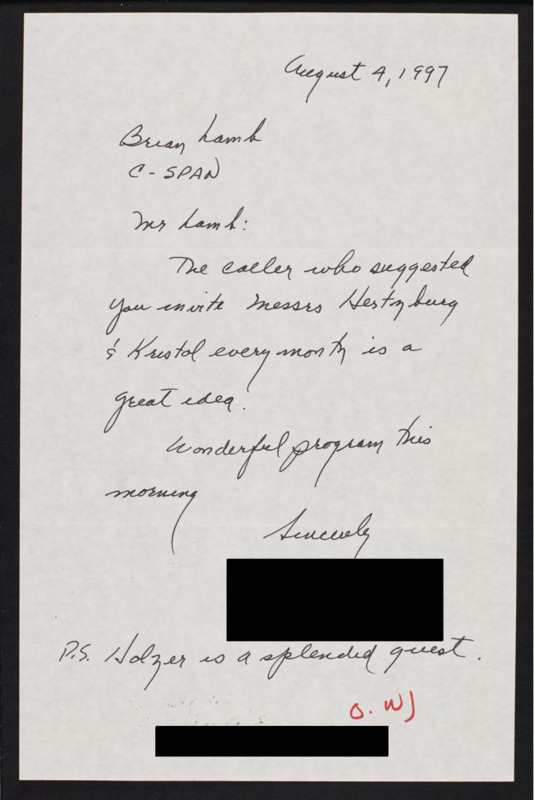 August 4, 1997
Brian Lamb
C-SPAN
Mr Lamb:
The caller who suggested
you invite Messrs Hertzburg
& Kristol every month is a
great idea.
Wonderful program this
morning
Sincerely
P.S. Holzer is a splendid guest.
O. WJ